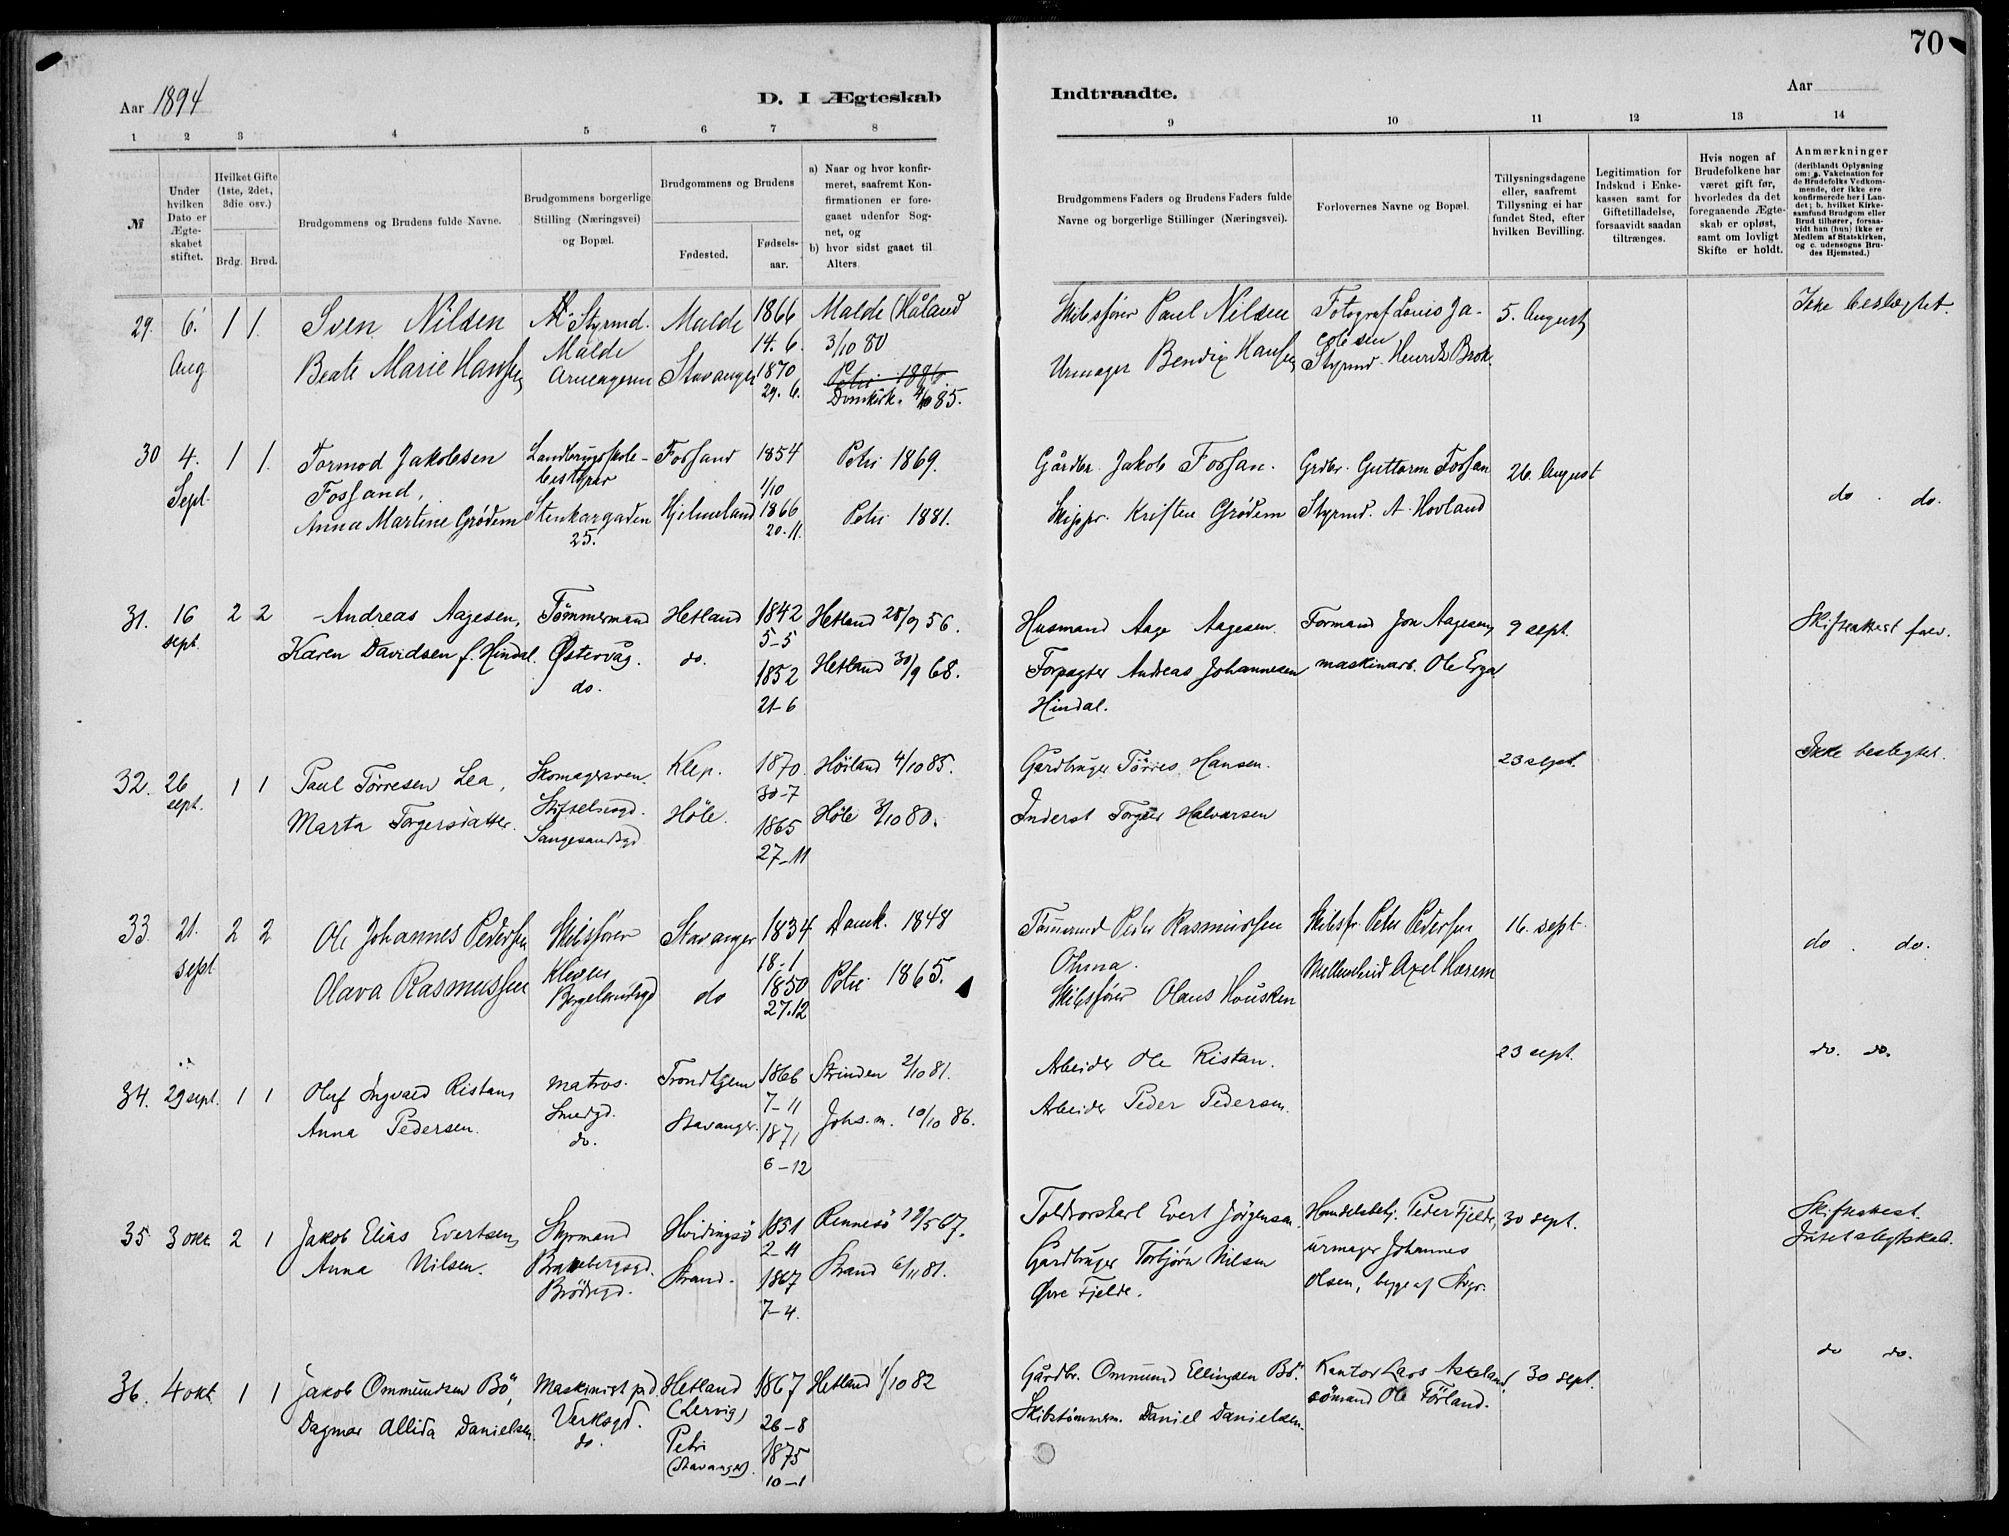 70
Aar 1894
D. I Ægteskab
Indtraadte.
Aar
1 2 3 4 5 6 7 8
9 10 11 12 13 14
№
Under hvilken Dato er Ægteskabet stiftet.
Hvilket Gifte (1ste, 2det, 3die osv.)
Brdg. Brud.
Brudgommens og Brudens fulde Navne.
Brudgommens borgerlige Stilling (Næringsvei) og Bopæl.
Brudgommens og Brudens
Fødested.
Fødselsaar.
a) Naar og hvor konfirmeret, saafremt Konfirmationen er foregaaet udenfor Sognet, og
b) hvor sidst gaaet til Alters.
Brudgommens Faders og Brudens Faders fulde Navne og borgerlige Stillinger (Næringsvei).
Forlovernes Navne og Bopæl.
Tillysningsdagene eller, saafremt Tillysning ei har fundet Sted, efter hvilken Bevilling.
Legitimation for Indskud i Enkekassen samt for Giftetilladelse, forsaavidt saadan tiltrænges.
Hvis nogen af Brudefolkene har været gift før, hvorledes da det foregaaende Ægteskab er opløst, samt om lovligt Skifte er holdt.
Anmærkninger
(deriblandt Oplysning om: a. Vakcination for de Brudefolks Vedkommende, der ikke ere konfirmerede her i Landet; b. hvilket Kirkesamfund Brudgom eller Brud tilhører, forsaavidt han (hun) ikke er Medlem af Statskirken, og c. udensogns Brudes Hjemsted.)
29. 6. Aug 1 1.
Sven Nilsen
Beate Marie Hansen
Styrmd.
Malde
Malde
Stavanger
1866
14. 6.
1870
29. 6.
Malde (Håland
3/10 80
Petri 1886.
Domkirk. 4/10 85.
Skibsfører Paul Nilsen
Urmager Bendix Hansen
Fotograf Louis Jacobsen
Styrmd. Henrik Brok.
5. August
Ikke beslægtet.
30 4. Sept 1 1.
Tormod Jakobsen
Fossand,
Anna Martine Grødem
Landbrugsskolebestyrer
Stenkargaden
25.
Fossand
Hjelmeland
1854
1/10
1866
20. 11.
Petri 1869.
Petri 1881.
Gårdbr. Jakob Fossan.
Skipper. Kristen Grødem
Grdbr. Guttorm Fossan
Styrmd. A. Hovland
26. August
do. do.
31. 16 sept. 2 2
Andreas Aagesen,
Karen Davidsen f. Hindal.
Tømmermand
Østervåg.
do.
Hetland
do.
1842
5-5
1852
21-6
Hetland 28/9 56.
Hetland 30/9 68.
Husmand Aage Aagesen.
Forpagter Andreas Johannesen
Hindal.
Formand Jon Aagesen,
maskinarb. Ole Erga
9 sept.
Skifteattest frev.
32. 26 sept. 1 1
Paul Tørresen Lea,
Marta Torgersdatter.
Skomagersven.
Stiftelsesgd.
Langesandsgd
Klep.
Høle.
1870.
30-7
1865
27-11
Høiland 4/10 85.
Høle 3/10 80.
Gårdbruger Tørres Hansen.
Inderst Torger Halvorsen
23 sept.
Ikke beslegtet.
33. 21. sept 2 2
Ole Johannes Pedersen
Olava Rasmussen
Skibsfører
Kleven
Bergelandsgd
Stavanger
do
1834
18-1
1850
27.12
Domk. 1848
Petri 1865.
Tømmermd Peder Rasmussen
Ohma.
Skibsfører Olaus Housken
Skibsfr. Peter Pedersen
Axel Hærem
16. sept.
do. do.
34. 29 sept. 1 1
Oluf Ingvald Ristan,
Anna Pedersen.
Matros.
Smedgd.
do.
Trondhjem
Stavanger.
1866
7-11
1871
6-12
Strinden 2/10 81.
Johs. m. 10/10 86.
Arbeider Ole Ristan.
Arbeider Peder Pedersen.
23 sept.
do. do.
35 3 okt. 2 1
Jakob Elias Evertsen,
Anna Nilsen.
Styrmand
Brødregd.
Hvidingsø
Strand.
1851
2-11
1867
7-4.
Rennesø 19/5 67.
Strand 6/11 81.
Toldrorskarl Evert Jørgensen.
Gårdbruger Torbjørn Nilsen
Øvre Fjelde.
Handelsbetj. Peder Fjelde,
urmager Johannes
Olsen, begge af Stvgr.
30 sept.
Skifteattest.
Intet slegtskab.
36. 4 okt. 1 1
Jakob Ommundsen Bø,
Dagmar Allida Danielsen.
Maskinist på d.
Verksgd.
do.
Hetland
(Lervig)
Petri
(Stavanger).
1867
26-8
1875
10-1
Hetland 1/10 82
Gårdbr. Ommund Ellingsen Bø.
Skibstømmerm. Daniel Danielsen.
Kantor Lars Askeland,
sømand Ole Førland.
30 sept.
do do.